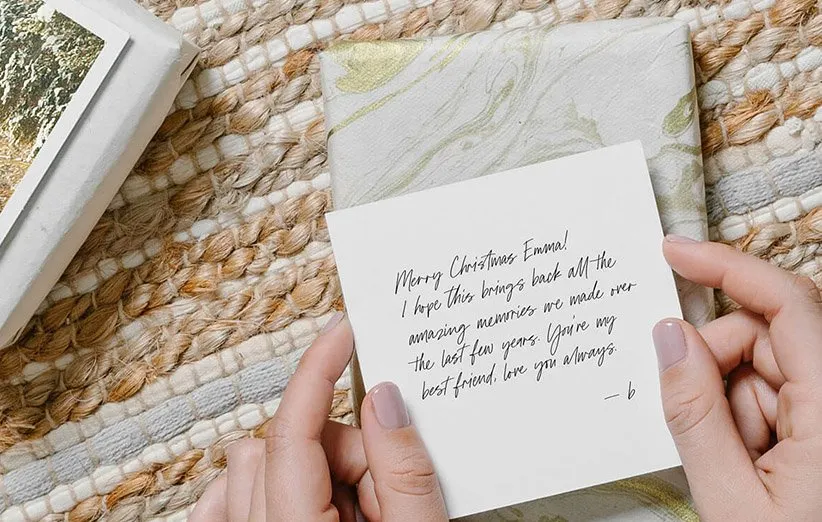 Merry Christmas Emma!
I hope this brings back all the
amazing memories we made over
the last few years. You're my
best friend, love you always.
— b